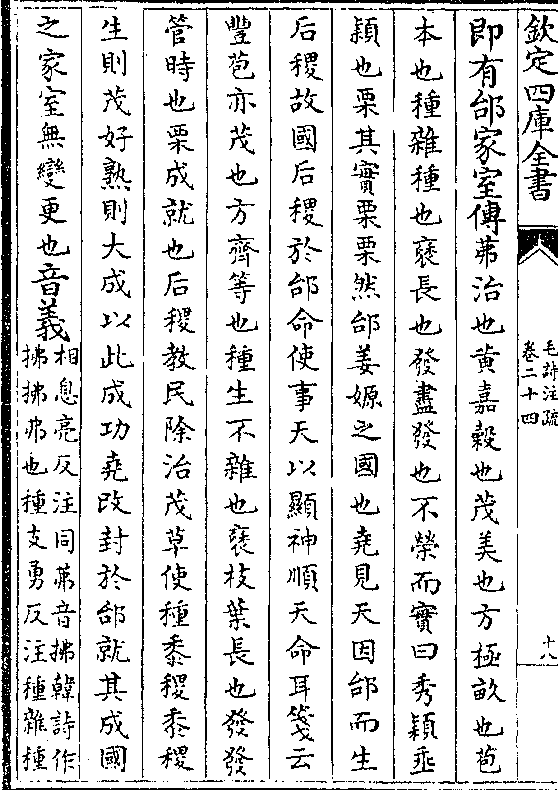 欽定四庫全書
毛詩注疏
卷二十四
十八
即有邰家室傳茀治也黄嘉榖也茂美也方極畝也苞
本也種雜種也褎長也發盡發也不榮而實曰秀穎垂
穎也栗其實栗栗然邰姜嫄之國也堯見天因邰而生
后稷故國后稷於邰命使事天以顯神順天命耳箋云
豐苞亦茂也方齊等也種生不雜也褎枝葉長也發發
管時也栗成就也后稷教民除治茂草使種黍稷黍稷
生則茂好熟則大成以此成功堯改封於邰就其成國
之家室無變更也音義
相息亮反注同茀音拂韓詩作
拂拂弗也種支勇反注種雜種